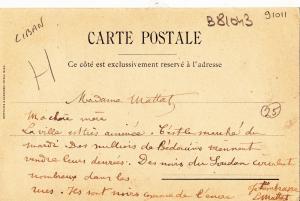 LIBAN
B81043
91011
H
CARTE POSTALE
Ce côté est exclusivement réservé à l'adresse
Madame Mattat
25
Ma chère mère
La ville est très animée. C'est le marché du
mardi. Des milliers de Bédouins viennent
vendre leurs denrées. Des noirs du Soudan circulent
nombreux dans les
rues. Ils sont noirs comme de l'encre
Mattat